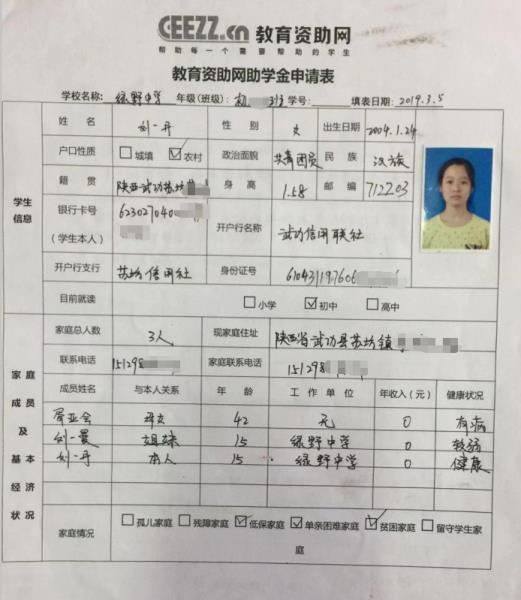 CEEZZ.cn 教育资助网
帮助每一个需要帮助的学生
教育资助网助学金申请表
学校名称: 绿野中学 年级(班级): 初 班 学号: 填表日期: 2019.3.5
学生信息
姓 名 刘一丹 性 别 女 出生日期 2004.1.24
户口性质 □城填 ☑农村 政治面貌 共青团员 民 族 汉族
籍 贯 陕西武功苏坊 身 高 1.58 邮 编 712203
银行卡号 (学生本人) 623027040 开户行名称 武功信用联社
开户行支行 苏坊信用社 身份证号
目前就读 □小学 ☑初中 □高中
家庭成员及基本经济状况
家庭总人数 3人 现家庭住址 陕西省武功县苏坊镇
联系电话 151298 家庭联系电话 151298
成员姓名 与本人关系 年 龄 工 作 单 位 年收入(元) 健康状况
亚会 母女 42 无 0 有病
刘一曼 姐妹 15 绿野中学 0 较弱
刘一丹 本人 15 绿野中学 0 健康
家庭情况 □孤儿家庭 □残障家庭 ☑低保家庭 ☑单亲困难家庭 ☑贫困家庭 □留守学生家庭